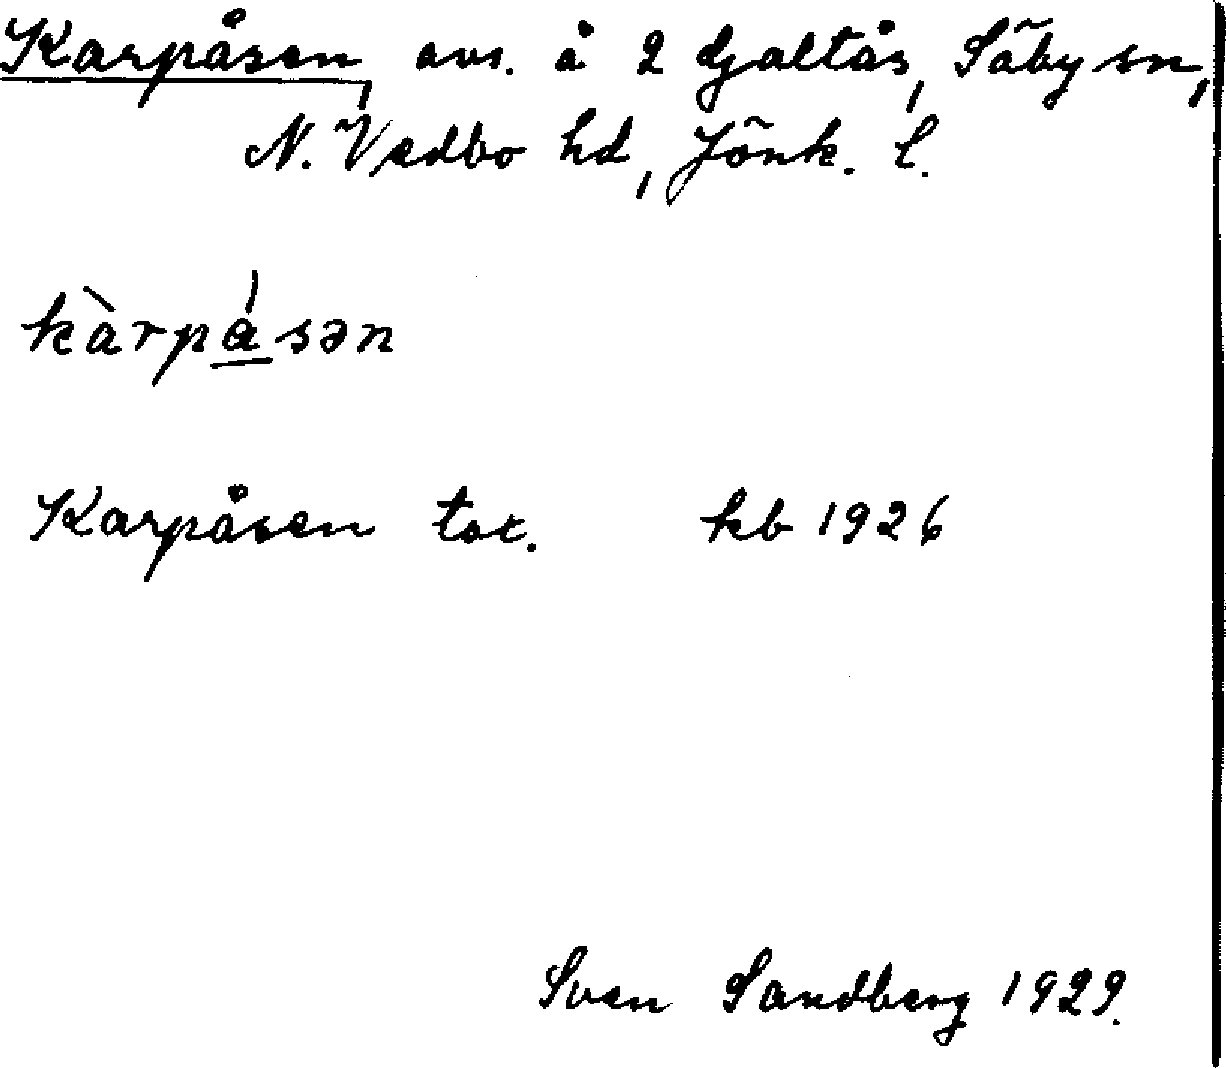 Karpåsen, avs. å 2 Galtås, Säby sn,
N. Vedbo hd, Jönk. l.
kàrpåsən
Karpåsen tor. kb 1926
Sven Sandberg 1929.